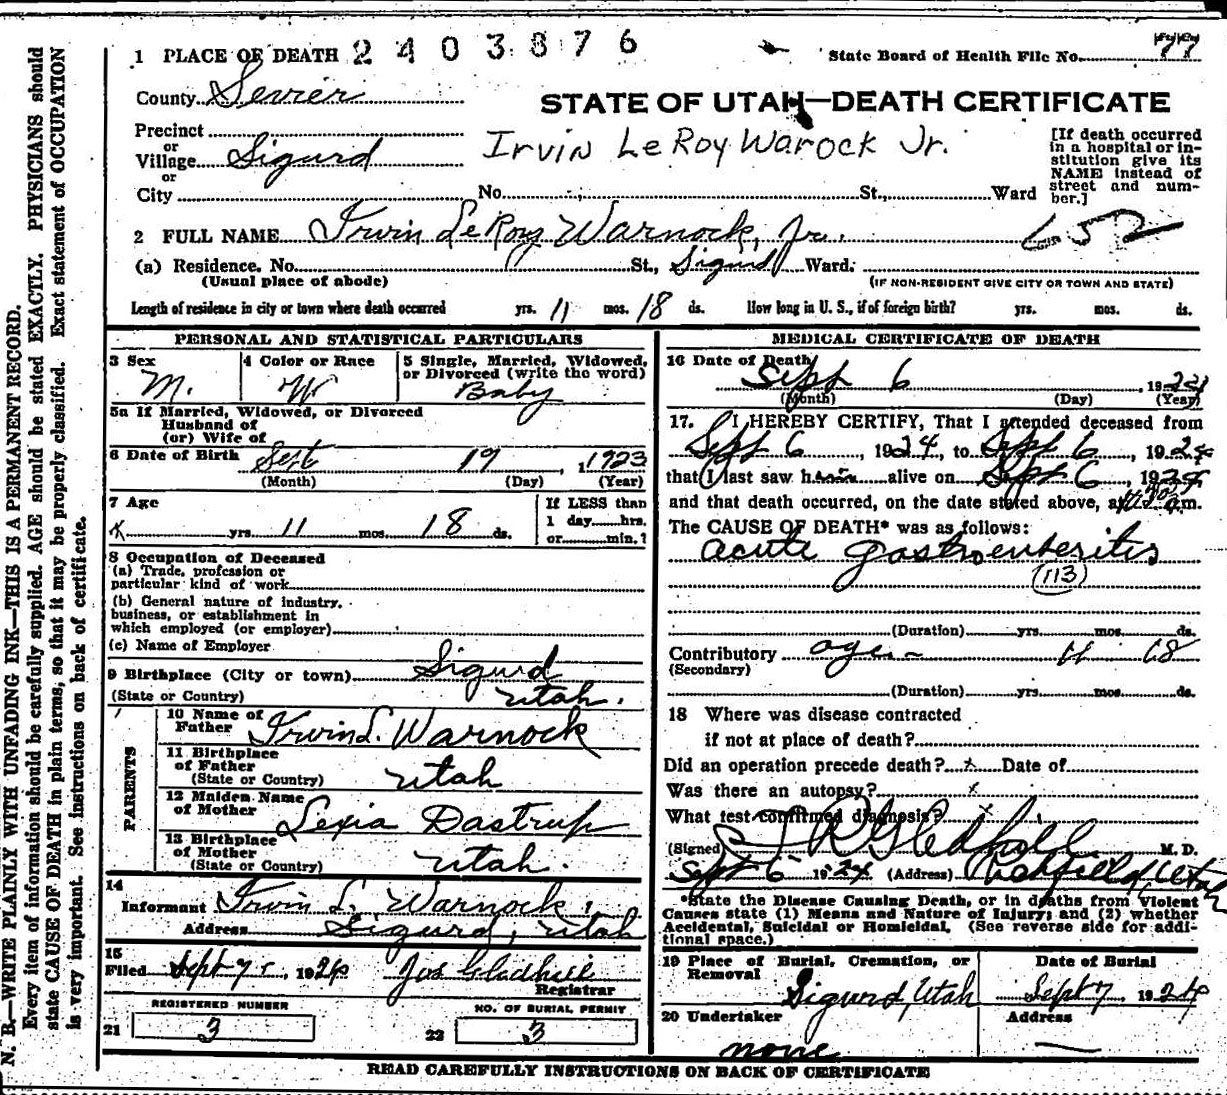 1 PLACE OF DEATH 2403876
State Board of Health File No. 77
County Sevier
STATE OF UTAH—DEATH CERTIFICATE
Precinct
or
Village Sigurd
or
City
Irvin LeRoy Warock Jr.
[If death occurred in a hospital or in-
stitution give its
NAME instead of
street and num-
ber.]
No. St., Ward
2 FULL NAME Irvin LeRoy Warnock, Jr.
652
(a) Residence. No. St., Sigurd Ward.
(Usual place of abode) (IF NON-RESIDENT GIVE CITY OR TOWN AND STATE)
Length of residence in city or town where death occurred yrs. 11 mos. 18 ds. How long in U. S., if of foreign birth? yrs. mos. ds.
PERSONAL AND STATISTICAL PARTICULARS
3 Sex
M.
4 Color or Race
W
5 Single, Married, Widowed,
or Divorced (write the word)
Baby
5a If Married, Widowed, or Divorced
Husband of
(or) Wife of
6 Date of Birth Sept 19, 1923
(Month) (Day) (Year)
7 Age
x yrs. 11 mos. 18 ds.
If LESS than
1 day......hrs.
or......min.?
8 Occupation of Deceased
(a) Trade, profession or
particular kind of work
(b) General nature of industry,
business, or establishment in
which employed (or employer)
(c) Name of Employer
9 Birthplace (City or town) Sigurd
(State or Country) Utah.
PARENTS
10 Name of
Father Irvin L. Warnock
11 Birthplace
of Father
(State or Country) Utah
12 Maiden Name
of Mother Lexia Dastrup
13 Birthplace
of Mother
(State or Country) Utah.
14
Informant Irvin L. Warnock,
Address Sigurd, Utah
15
Filed Sept 7-, 1924 Jos Gledhill
Registrar
REGISTERED NUMBER
21 3
NO. OF BURIAL PERMIT
22 3
MEDICAL CERTIFICATE OF DEATH
16 Date of Death
Sept 6, 1924
(Month) (Day) (Year)
17. I HEREBY CERTIFY, That I attended deceased from
Sept 6, 1924, to Sept 6, 1924
that I last saw him alive on Sept 6, 1924
and that death occurred, on the date stated above, at m.
The CAUSE OF DEATH* was as follows:
acute gastroenteritis
(113)
(Duration) yrs. mos. ds.
Contributory age - 11 18
(Secondary)
(Duration) yrs. mos. ds.
18 Where was disease contracted
if not at place of death?
Did an operation precede death? x Date of
Was there an autopsy? x
What test confirmed diagnosis? x
(Signed) Gledhill M. D.
Sept 6 1924 (Address) Richfield, Utah
*State the Disease Causing Death, or in deaths from Violent
Causes state (1) Means and Nature of Injury; and (2) whether
Accidental, Suicidal or Homicidal. (See reverse side for addi-
tional space.)
19 Place of Burial, Cremation, or
Removal
Sigurd, Utah
Date of Burial
Sept 7 1924
20 Undertaker
none
Address
—
READ CAREFULLY INSTRUCTIONS ON BACK OF CERTIFICATE
N. B.—WRITE PLAINLY WITH UNFADING INK—THIS IS A PERMANENT RECORD.
Every item of information should be carefully supplied. AGE should be stated EXACTLY. PHYSICIANS should
state CAUSE OF DEATH in plain terms, so that it may be properly classified. Exact statement of OCCUPATION
is very important. See instructions on back of certificate.